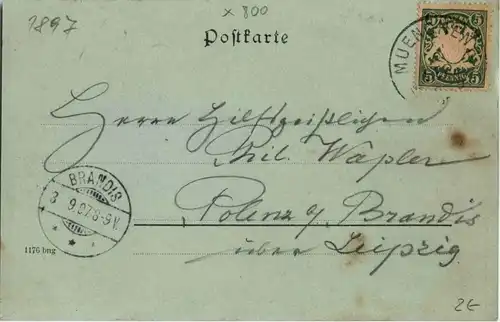 1897
x 800
Postkarte
MUENCHEN
5 5
PFENNIG
5 5
Herrn Hilfsgeistlichen
Phil. Wapler
BRANDIS
3 9.97 8-9 V.
Polenz b/ Brandis
über Leipzig.
1176 bmg
2€